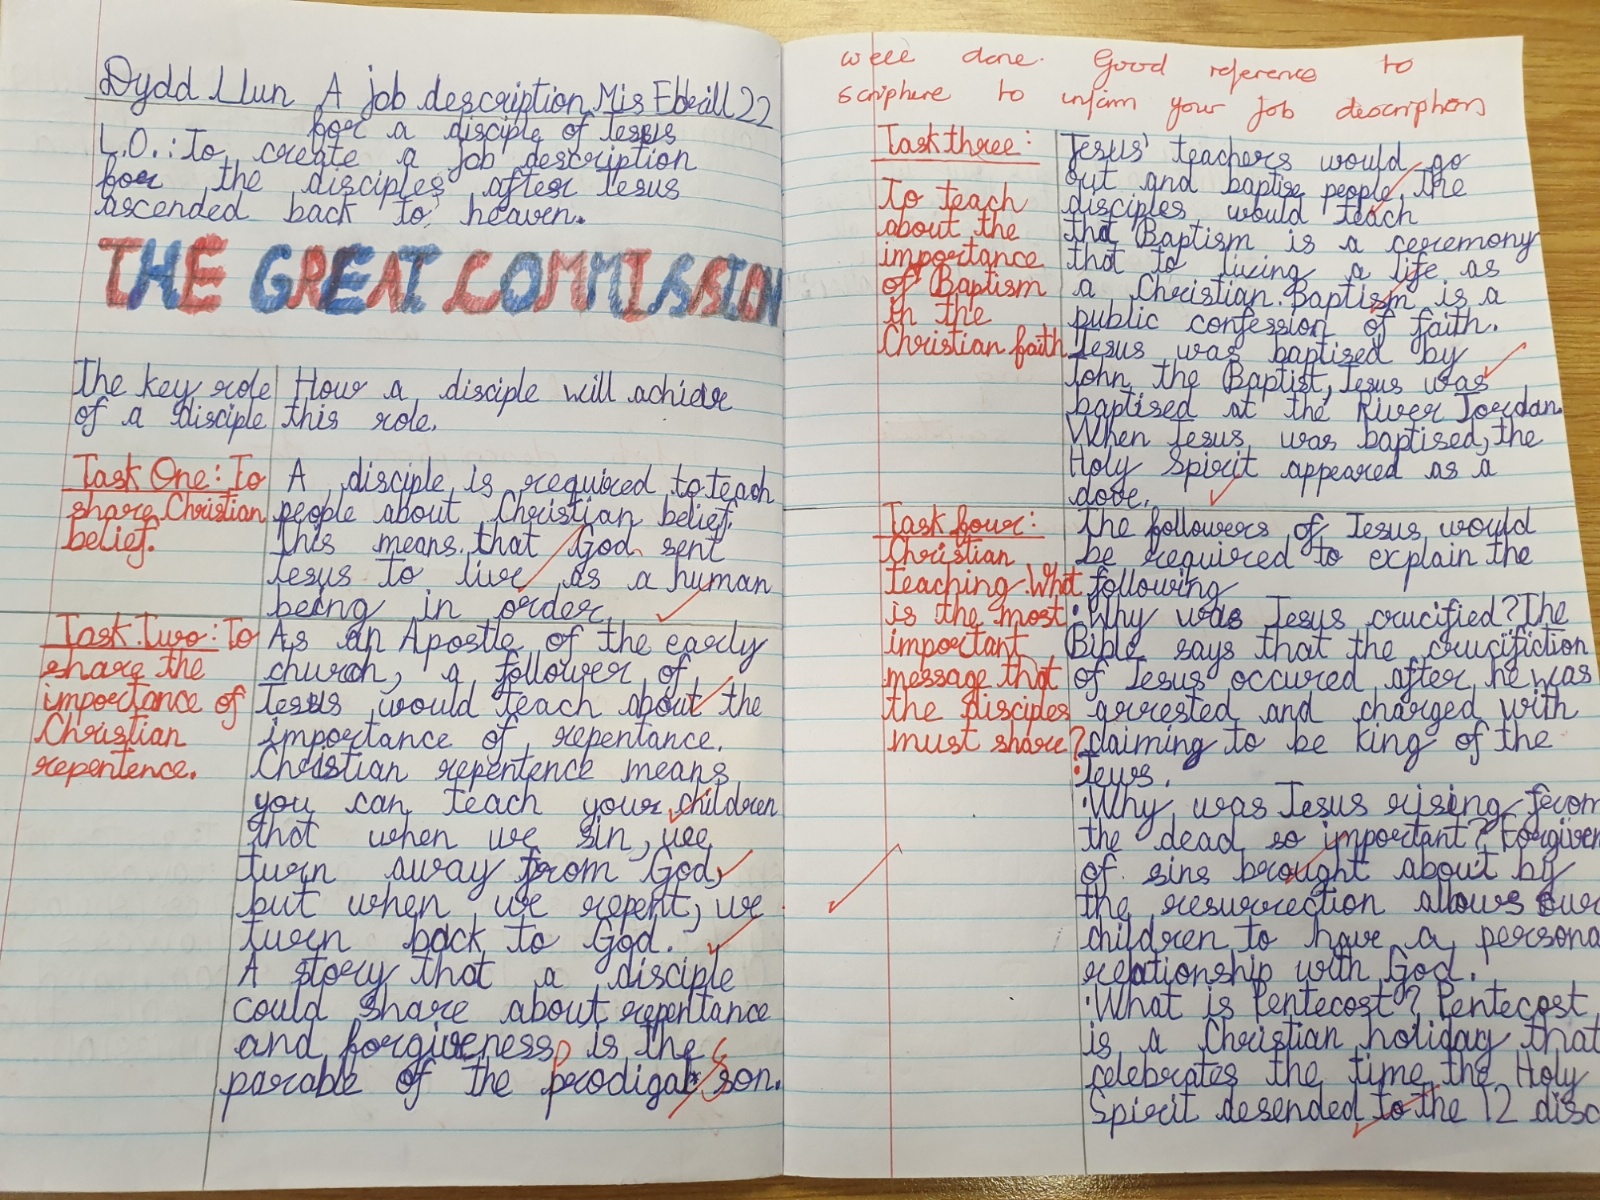 Dydd Llun A job description Mis Ebrill 22
for a disciple of Jesus
L.O.: To create a job description
for the disciples after Jesus
ascended back to heaven.
THE GREAT COMMISSION
The key role
of a disciple
How a disciple will achieve
this role.
Task One: To
share Christian
belief.
A disciple is required to teach
people about Christian belief.
This means that God sent
Jesus to live as a human
being in order
Task Two: To
share the
importance of
Christian
repentence.
As an Apostle of the early
church, a follower of
Jesus would teach about the
importance of repentance.
Christian repentence means
you can teach your children
that when we sin, we
turn away from God,
but when we repent, we
turn back to God.
A story that a disciple
could share about repentance
and forgiveness is the
parable of the prodigal son.
well done. Good reference to
scripture to inform your job description
Task three:
To teach
about the
importance
of Baptism
in the
Christian faith
Jesus' teachers would go
out and baptise people, the
disciples would teach
that Baptism is a ceremony
that to living a life as
a Christian. Baptism is a
public confession of faith.
Jesus was baptised by
John the Baptist, Jesus was
baptised at the River Jordan.
When Jesus was baptised, the
Holy Spirit appeared as a
dove.
Task four:
Christian
teaching. What
is the most
important
message that
the disciples
must share?
The followers of Jesus would
be required to explain the
following
• Why was Jesus crucified? The
Bible says that the crucifiction
of Jesus occured after he was
arrested and charged with
claiming to be king of the
Jews.
• Why was Jesus rising from
the dead so important? Forgiven
of sins brought about by
the resurrection allows our
children to have a persona
relationship with God.
• What is Pentecost? Pentecost
is a Christian holiday that
celebrates the time the Holy
Spirit desended to the 12 disc